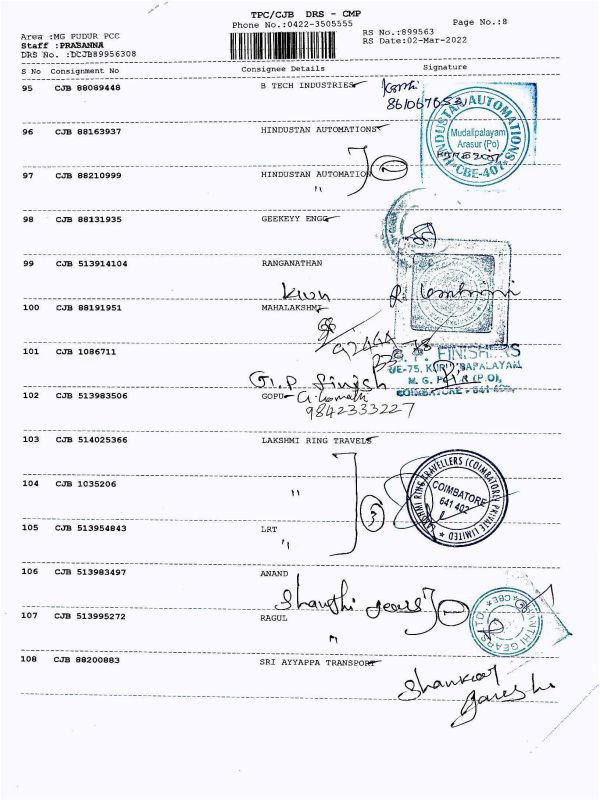 TPC/CJB DRS - CMP
Phone No.:0422-3505555
Page No.:8
Area :MG PUDUR PCC
RS No.:899563
Staff :PRASANNA
RS Date:02-Mar-2022
DRS No. :DCJB89956308
S No Consignment No Consignee Details Signature
95 CJB 88089448 B TECH INDUSTRIES
HINDUSTAN AUTOMATIONS
Mudalipalayam
Arasur (Po)
CBE-407
96 CJB 88163937 HINDUSTAN AUTOMATIONS
97 CJB 88210999 HINDUSTAN AUTOMATION
"
98 CJB 88131935 GEEKEYY ENGG
99 CJB 513914104 RANGANATHAN
100 CJB 88191951 MAHALAKSHMI
101 CJB 1086711
FINISHERS
M. G. (P.O),
COIMBATORE - 641
G.P finish
102 CJB 513983506 GOPU
9842333227
103 CJB 514025366 LAKSHMI RING TRAVELS
LAKSHMI RING TRAVELLERS (COIMBATORE) PRIVATE LIMITED
COIMBATORE
641 402
104 CJB 1035206
"
3
105 CJB 513954843 LRT
"
106 CJB 513983497 ANAND
Shanthi gears
107 CJB 513995272 RAGUL
"
108 CJB 88200883 SRI AYYAPPA TRANSPORT
Shankar